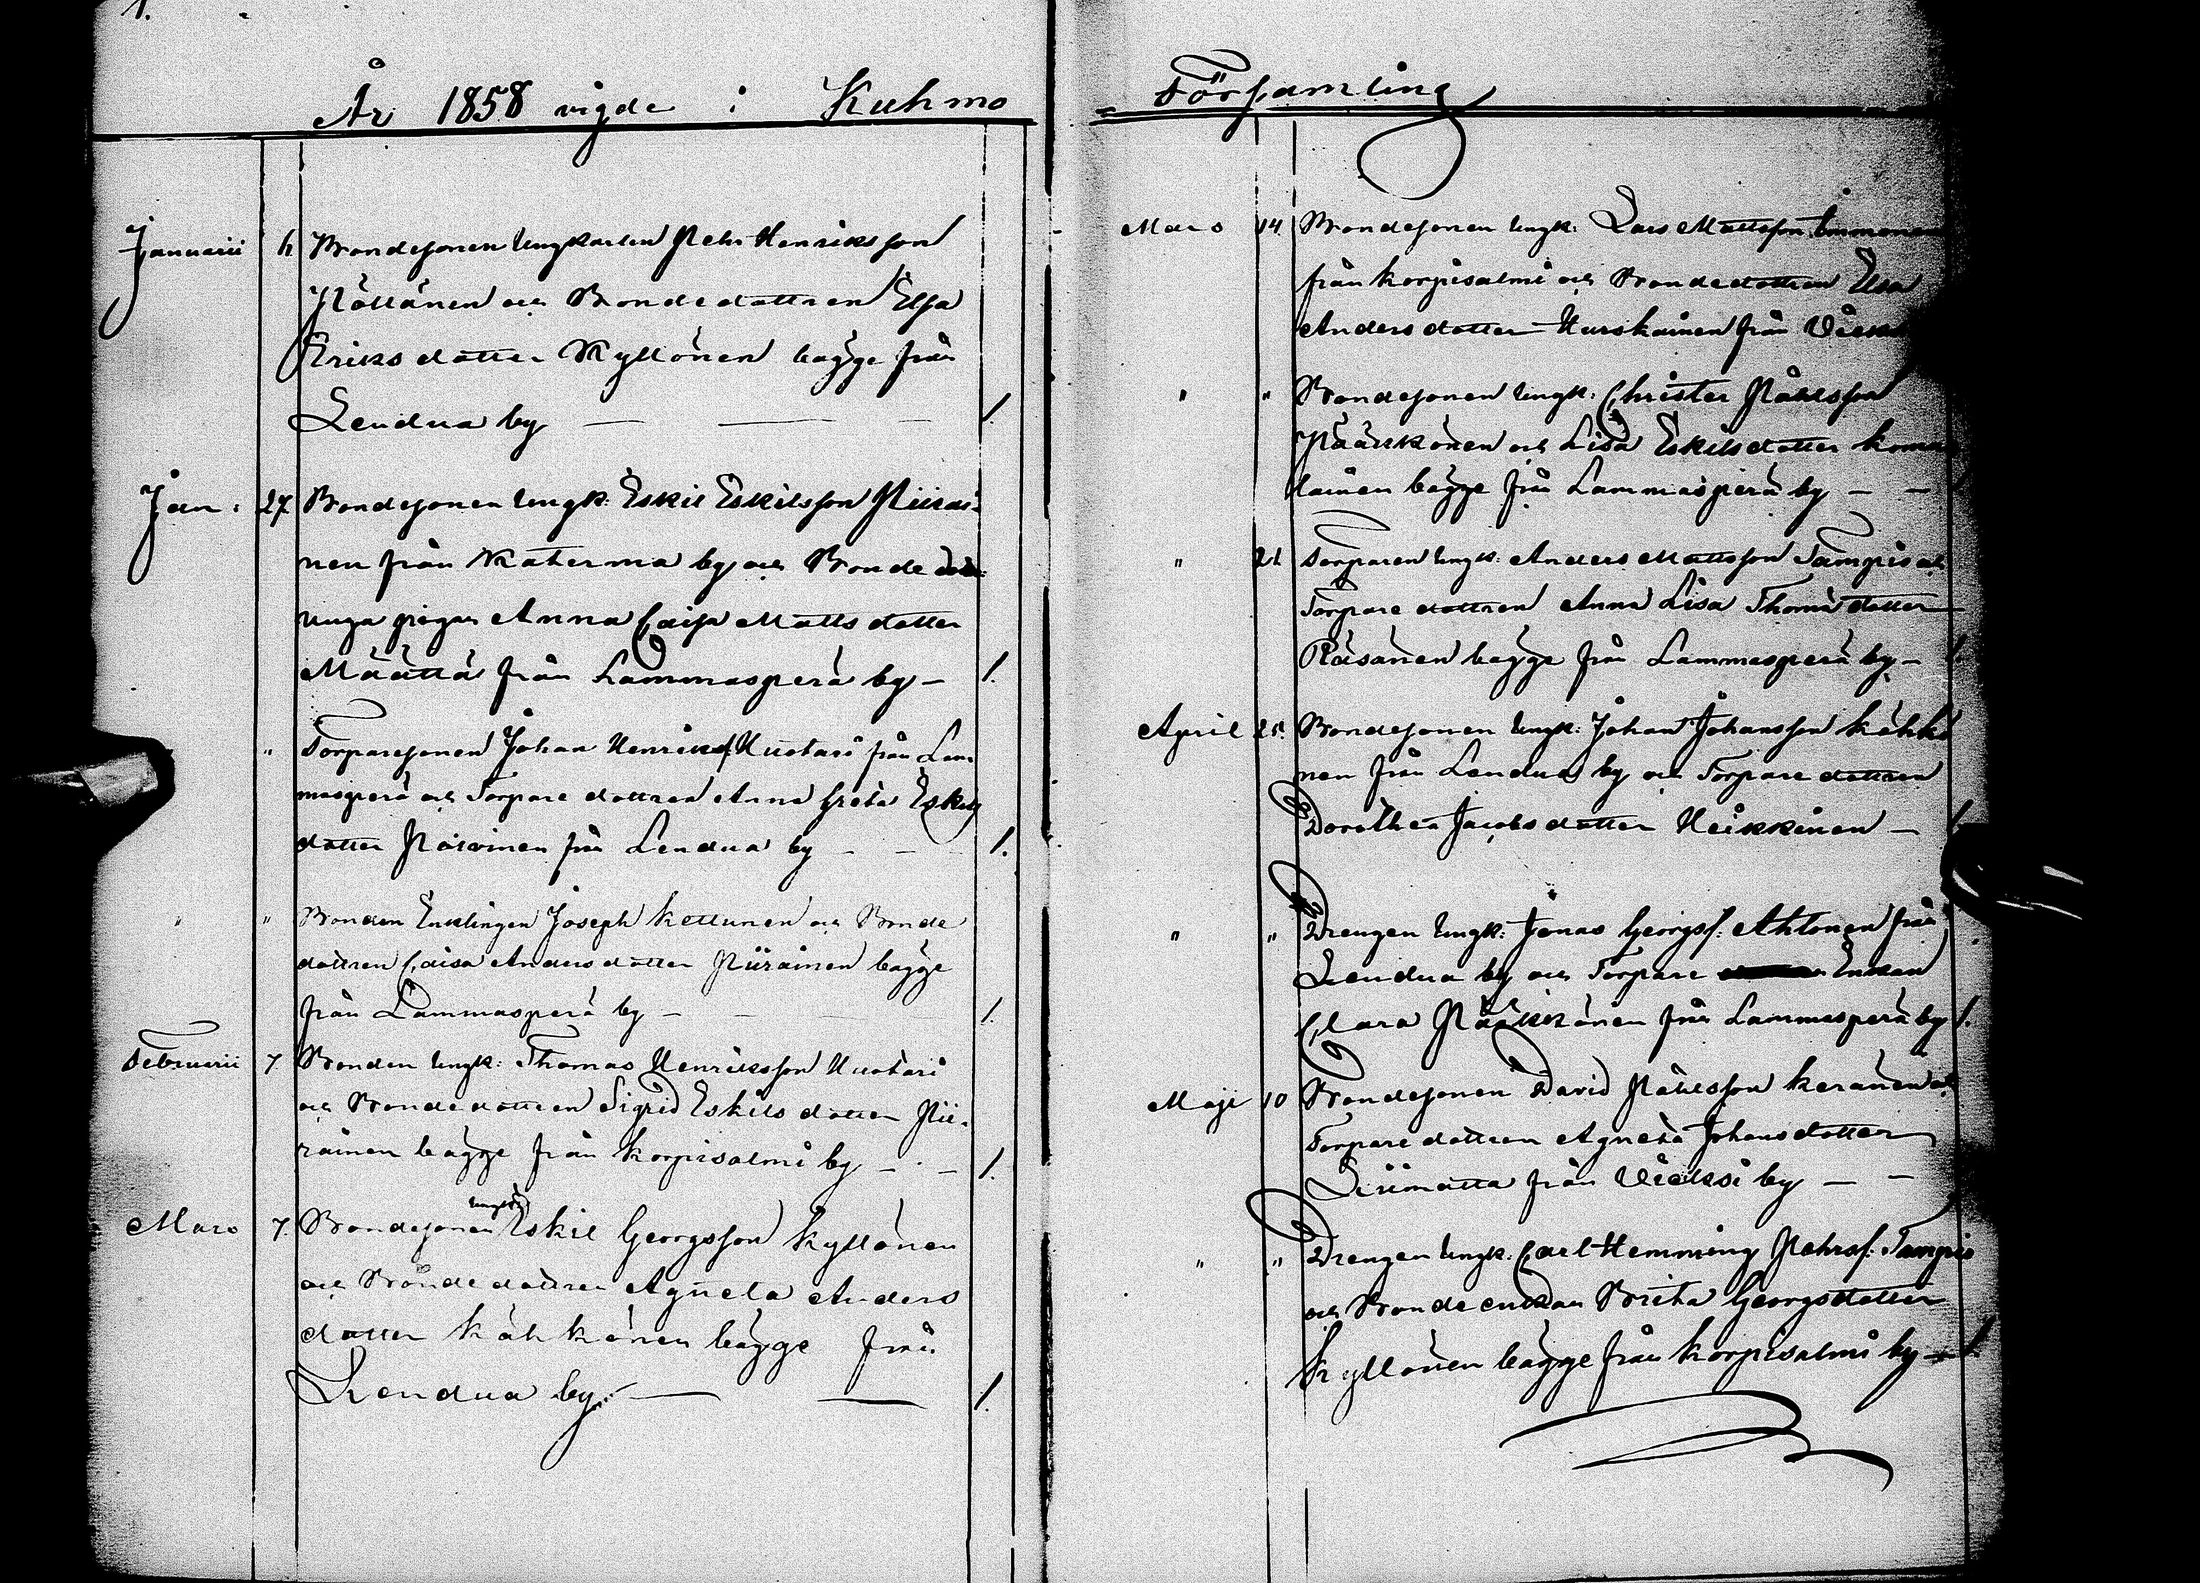 1.
År 1858 vigde i Kuhmo
Januarii Bondesonen Ungkarlen Pehr Henriksson
Pöllänen och Bondedottren Elsa
Eriksdotter Kyllönen bägge från
Lendua by — — — 1.
Jan: 27 Bondesonen Ungk: Eskil Eskilsson Piirai-
nen från Katerma by och Bonde
unga pigan Anna Caisa Mattsdotter
Määttä från Lammasperä by — 1.
" Torparesonen Johan Henrikss Huotari från Lam-
masperä och Torpare dottren Anna Greta Eskils
dotter från Lendua by — — 1.
" " Bonden Enklingen Joseph Kettunen och Bonde
dottren Caisa Andersdotter Piirainen bägge
från Lammasperä by — — — 1.
Februarii 7 Bonden Ungk: Thomas Henriksson Huotari
och Bondedottren Sigrid Eskilsdotter Pii-
rainen bägge från Korpisalmi by — . — 1.
Mars 7. Bondesonen Eskil Georgsson Kyllönen
och Bondedottren Agneta Anders
dotter Kähkönen bägge från
Lendua by. — — 1.
Församling
Mars 14 Bondesonen Ungk: Lars Mattsson Immonen
från Korpisalmi och Bondedottren Elsa
Andersdotter Hurskainen från
" " Bondesonen Ungk: Christer Påhlsson
Pääkkönen och Lisa Eskilsdotter Koma
lainen bägge från Lammasperä by — —
" 21 Torparen Ungk: Anders Mattsson Tampio och
Torpare dottren Anna Lisa Thoma dotter
Räsänen bägge från Lammasperä by — 1.
April 25. Bondesonen Ungk: Johan Johansson Kähkö
nen från Lendua by och Torpare dottren
Dorothea Jacobsdotter Heikkinen — 1.
" " Drengen Ungk: Jonas Georgss: Ahtonen från
Lendua by och Torpare Enkan
Clara Pääkkönen från Lammasperä by 1.
Maji 10 Bondesonen David Påhlsson Keränen och
Torpare dottren Agneta Johansdotter
Liimatta från Vieksi by — —
" " Drengen Ungk: Carl Hemming Pehrss: Tampio
och Bonde enkan Brita Georgsdotter
Kyllönen bägge från Korpisalmi by — 1.